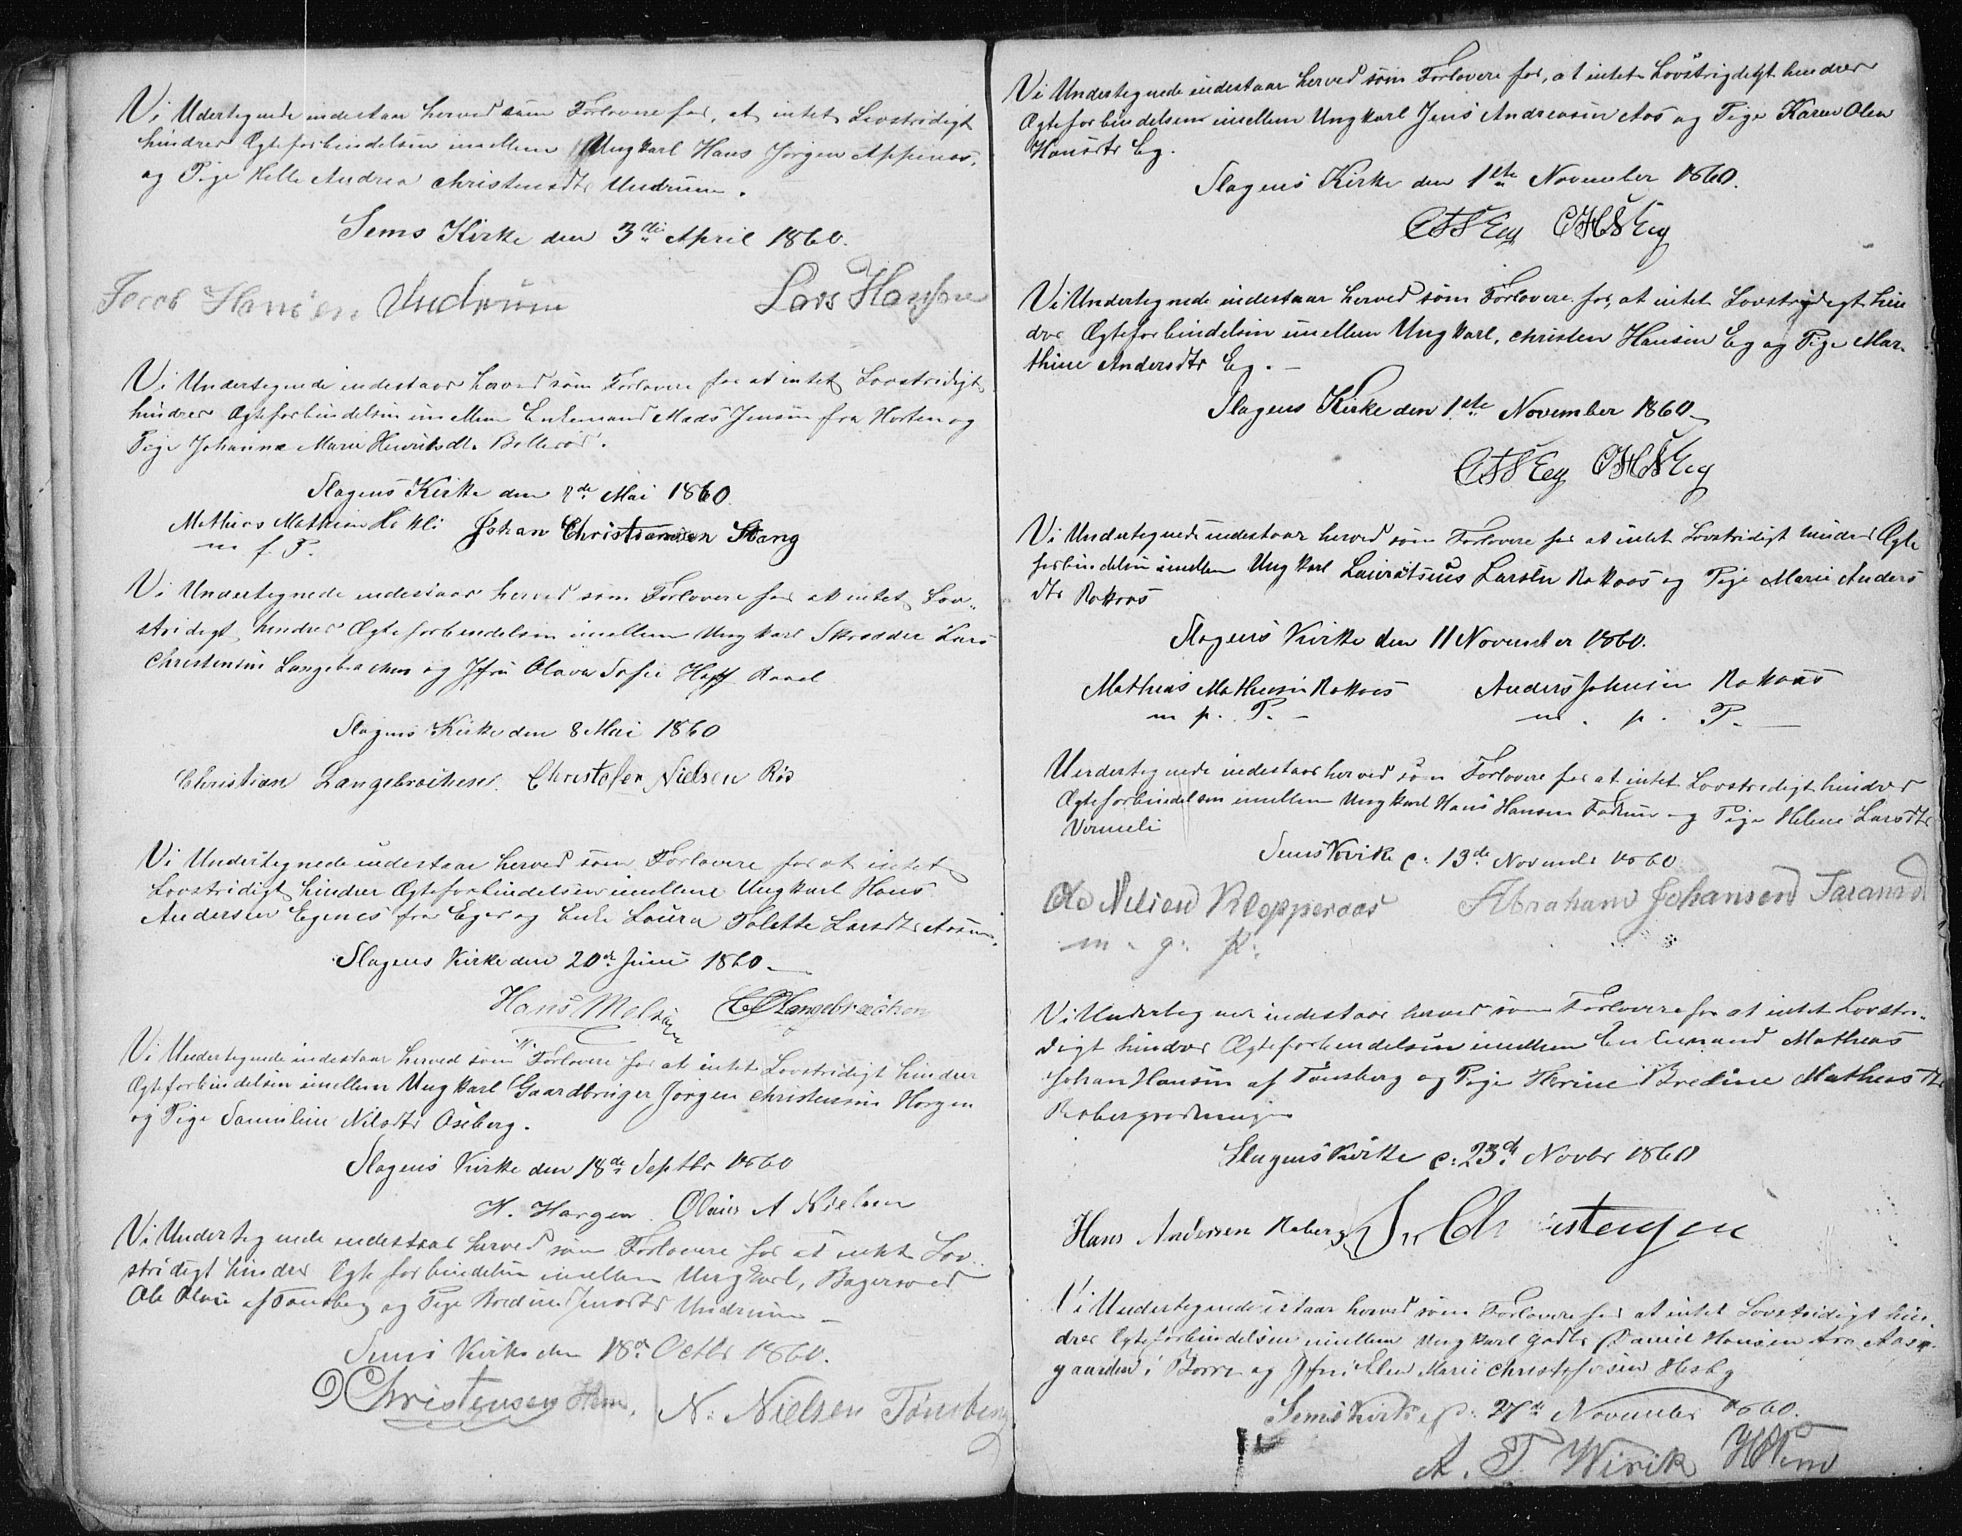 Vi Udertegnede indestaar herved som Forlovere for, at intet Lovstridigt
hindrer Ægteforbindelsen imellem Ungkarl Hans Jørgen Appenæs,
og Pige Helle Andrea Christensdtr Undrum.
Sems Kirke den 3die April 1860.
Jacob Hansen Undrum Lars Hansen
Vi Undertegnede indestaar herved som Forlovere for at intet Lovstridigt
hindrer Ægteforbindelsen imellem Enkemand Mads Jensen fra Horten og
Pige Johanne Marie Henriksdtr Bollerød.
Slagens Kirke den 2de Mai 1860.
Mathias Mathisen Johan Christiansen Stang
m f P.
Vi Undertegnede indestaar herved som Forlovere for at intet Lov-
stridigt hindrer Ægteforbindelsen imellem Ungkarl Skrædder Lars
Christensen Langebrækken og Jfru Olava Sofie Hoff Raael
Slagens Kirke den 8 Mai 1860
Christian Langebrækken. Christofer Nielsen Rød
Vi Undertegnede indestaar herved som Forlovere for at intet
Lovstridigt hindrer Ægteforbindelsen imellem Ungkarl Hans
Andersen Egenes fra Eger og Enke Laura Tolette Larsdtr
Slagens Kirke den 20de Juni 1860.
Hans Melsom Langebrækken
Vi Undertegnede indestaar herved som Forlovere for at intet Lovstridigt hindrer
Ægteforbindelsen imellem Ungkarl Gaardbruger Jørgen Christensen Horgen
og Pige Samuline Nilsdtr Oseberg.
Slagens Kirke den 18de Septbr 1860
H. Horgen. Olaus A Nielsen
Vi Undertegnede indestaar herved som Forlovere for at intet Lov-
stridigt hindrer Ægteforbindelsen imellem Ungkarl, Bagersvend
Ole Olsen af Tønsberg og Pige Bredine Jensdtr Undrum
Sems Kirke den 18de Octbr 1860.
Christensen Hem. N. Nielsen Tønsberg
Vi Undertegnede indestaar herved som Forlovere for, at intet Lovstridigt hindrer
Ægteforbindelsen imellem Ungkarl Jens Andreasen Aos og Pige Karen Olea
Hansdtr Eg.
Slagens Kirke den 1ste November 1860.
CASEeg CHSEeg
Vi Undertegnede indestaar herved som Forlovere for, at intet Lovstridigt hin
drer Ægteforbindelsen imellem Ungkarl, Christen Hansen Eg og Pige Mar-
thine Andersdtr Eg.
Slagens Kirke den 1ste November 1860
CASEeg CHSEeg
Vi Undertegnede indestaar herved som Forlovere for at intet Lovstridigt hindrer Ægte
forbindelsen imellem Ungkarl Lauratsius Larsen Rakaas og Pige Marie Anders
dtr Rakaas
Slagens Kirke den 11 November 1860.
Mathias Mathisen Rakaas Anders Johnsen Rakaas
m. p. P. m. p. P.
Undertegnede indestaar herved som Forlovere for at intet Lovstridigt hindrer
Ægteforbindelsen imellem Ungkarl Hans Hansen Fadum og Pige Helene Larsdtr
Vermeli
Sems Kirke d. 13de November 1860.
Ole Nilsen Klopperaas Abraham Johansen
m. g. p.
Vi Undertegnede indestaar herved som Forlovere for at intet Lovstri-
digt hindrer Ægteforbindelsen imellem Enkemand Mathias
Johan Hansen af Tønsberg og Pige Herine Bredine Mathiasdtr
Rabergrødningen
Slagens Kirke d. 23de Novbr 1860
Hans Andersen Raberg Christensen
Vi Undertegnede istaar herved som Forlovere for at intet Lovstridigt hin-
drer Ægteforbindelsen imellem Ungkarl Gadbr Daniel Hansen fra Aas-
gaarden i Borre og Jfru Elen Marie Christofersen Hesby
Sems Kirke d. 27de November 1860.
A. T. Wirik Hem